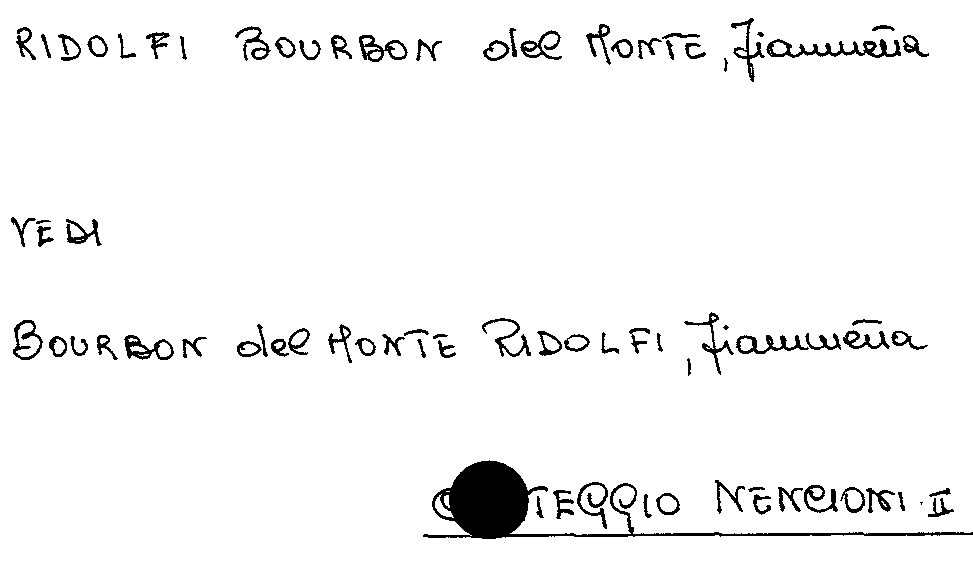 RIDOLFI BOURBON del MONTE, Fiammetta
VEDI
BOURBON del MONTE RIDOLFI, Fiammetta
CARTEGGIO NENCIONI II